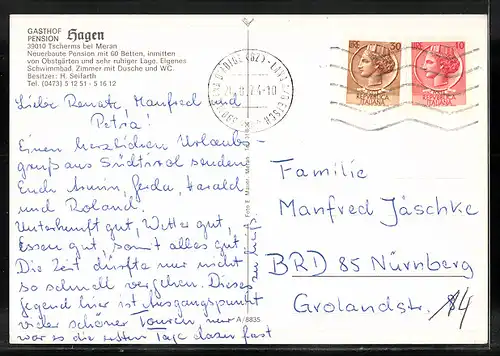 GASTHOF
PENSION Hagen
39010 Tscherms bei Meran
Neuerbaute Pension mit 60 Betten, inmitten
von Obstgärten und sehr ruhiger Lage. Eigenes
Schwimmbad. Zimmer mit Dusche und WC.
Besitzer: H. Seifarth
Tel. (0473) 5 12 51 - 5 16 12
Liebe Renate, Manfred und
Petra!
Einen herzlichen Urlaubs-
gruß aus Südtirol senden
Euch Armin, Gerda, Harald
und Roland.
Unterkunft gut, Wetter gut,
Essen gut, somit alles gut.
Die Zeit dürfte nur nicht
so schnell vergehen. Diese
Gegend hier ist Ausgangspunkt
vieler schöner Touren, nur
war es die ersten Tage dazu fast
zu heiß.
A/8835
LIRE 50
REPUBBLICA
ITALIANA
LIRE 10
REPUBBLICA
ITALIANA
Familie
Manfred Jäschke
BRD 85 Nürnberg
Grolandstr. 14